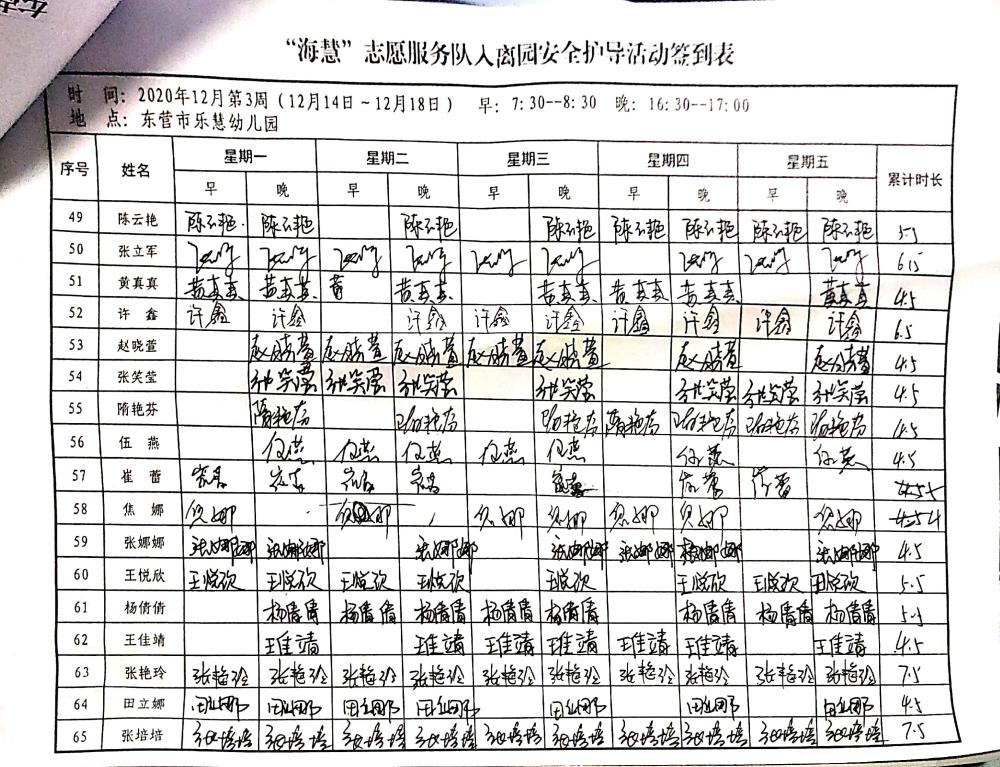 “海慧”志愿服务队入离园安全护导活动签到表
时 间：2020年12月第3周（12月14日～12月18日） 早：7:30--8:30 晚：16:30--17:00
地 点：东营市乐慧幼儿园
序号 姓名 星期一 星期二 星期三 星期四 星期五 累计时长
早 晚 早 晚 早 晚 早 晚 早 晚
49 陈云艳 陈云艳 陈云艳 陈云艳 陈云艳 陈云艳 陈云艳 陈云艳 陈云艳 5.5
50 张立军
51 黄真真 黄真真 黄真真 黄 黄真真 黄真真 黄真真 黄真真 黄真真 4.5
52 许鑫 许鑫 许鑫 许鑫 许鑫 许鑫 许鑫 许鑫 许鑫 许鑫 6.5
53 赵晓萱 赵晓萱 赵晓萱 赵晓萱 赵晓萱 赵晓萱 赵晓萱 赵晓萱 4.5
54 张笑莹 张笑莹 张笑莹 张笑莹 张笑莹 张笑莹 张笑莹 张笑莹 4.5
55 隋艳芬 隋艳芬 隋艳芬 隋艳芬 隋艳芬 隋艳芬 隋艳芬 隋艳芬 4.5
56 伍燕 伍燕 伍燕 伍燕 伍燕 伍燕 伍燕 伍燕 4.5
57 崔蕾
58 焦娜 焦娜 焦娜 焦娜 焦娜 焦娜 焦娜 焦娜
59 张娜娜 张娜娜 张娜娜 张娜娜 张娜娜 张娜娜 张娜娜 张娜娜 4.5
60 王悦欣 王悦欣 王悦欣 王悦欣 王悦欣 王悦欣 王悦欣 王悦欣 王悦欣 5.5
61 杨倩倩 杨倩倩 杨倩倩 杨倩倩 杨倩倩 杨倩倩 杨倩倩 杨倩倩 杨倩倩 5.5
62 王佳靖 王佳靖 王佳靖 王佳靖 王佳靖 王佳靖 王佳靖 王佳靖 4.5
63 张艳玲 张艳玲 张艳玲 张艳玲 张艳玲 张艳玲 张艳玲 张艳玲 张艳玲 张艳玲 张艳玲 7.5
64 田立娜 田立娜 田立娜 田立娜 田立娜 田立娜 田立娜 田立娜 4.5
65 张培培 张培培 张培培 张培培 张培培 张培培 张培培 张培培 张培培 张培培 张培培 7.5